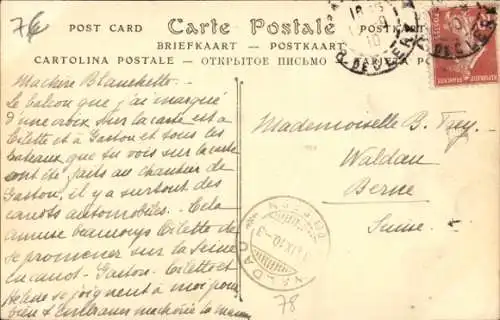 76
POST CARD Carte Postale POSTKARTE
BRIEFKAART — POSTKAART
CARTOLINA POSTALE — ОТКРЫТОЕ ПИСЬМО
Ma chère Blanchette
Le balcon que j'ai marqué
d'une croix sur la carte est à
Oilette et à Gaston et tous les
bateaux que tu vois sur la carte
ont été faits au chantier de
Gaston, il y a surtout des
canots automobiles. Cela
amuse beaucoup Oilette de
se promener sur la Seine
en canot. Gaston Oilette et
Hélène se joignent à moi pour
bien t'embrasser ma chérie ta maman
Mademoiselle B. Frey
Waldau
Berne
Suisse
REPUBLIQUE FRANÇAISE
POSTES
WALDAU
78